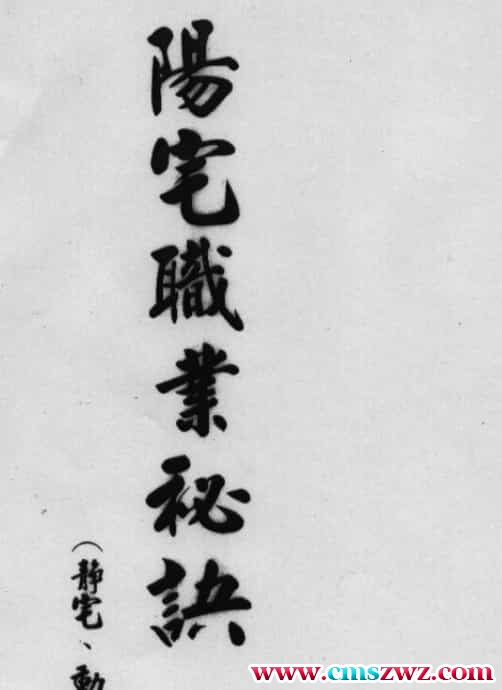 陽宅職業祕訣
（靜宅、動
www.cmszwz.com